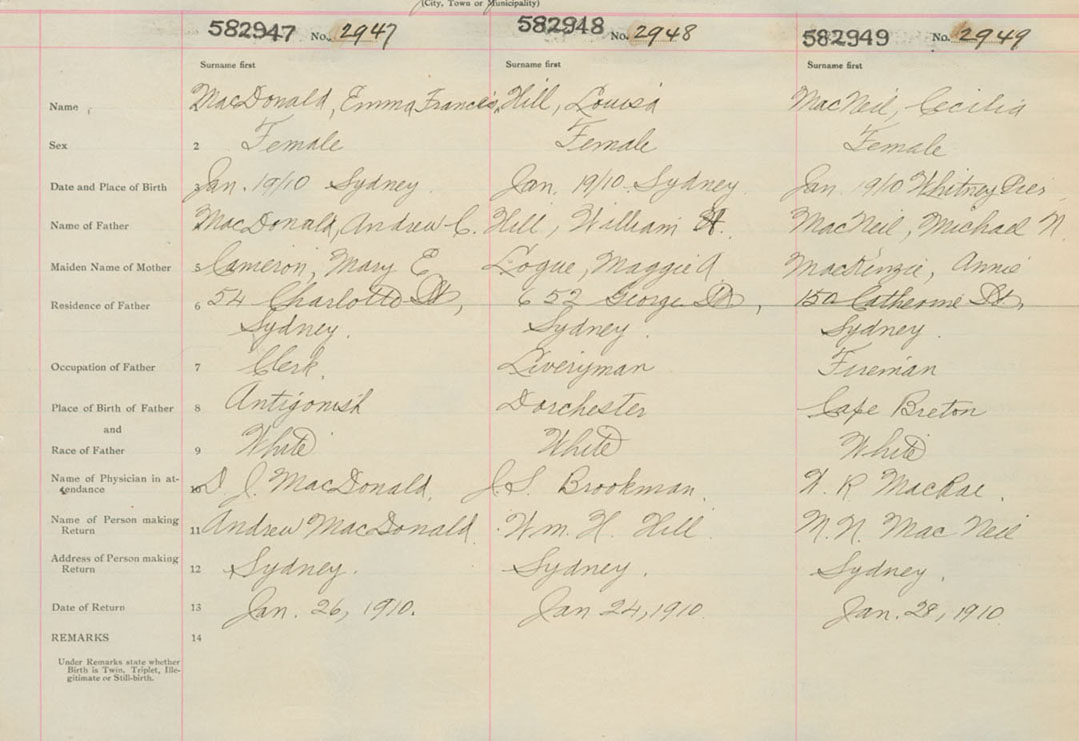 (City, Town or Municipality)
582947 No. 2947 582948 No. 2948 582949 No. 2949
Surname first Surname first Surname first
Name MacDonald, Emma Frances Hill, Louisa MacNeil, Cecilia
Sex 2 Female Female Female
Date and Place of Birth 3 Jan. 19/10 Sydney Jan. 19/10 Sydney Jan. 19/10 Whitney Pier
Name of Father MacDonald, Andrew C. Hill, William H. MacNeil, Michael N.
Maiden Name of Mother 5 Cameron, Mary E Logue, Maggie A MacKenzie, Annie
Residence of Father 6 54 Charlotte St, 652 George St, 150 Catherine St,
Sydney. Sydney. Sydney.
Occupation of Father 7 Clerk. Liveryman Fireman
Place of Birth of Father 8 Antigonish Dorchester Cape Breton
and
Race of Father 9 White White White
Name of Physician in at-
tendance 10 D J. MacDonald. J. S. Brookman. W. R MacRae.
Name of Person making
Return 11 Andrew MacDonald Wm. H. Hill M. N. MacNeil
Address of Person making
Return 12 Sydney. Sydney. Sydney.
Date of Return 13 Jan. 26, 1910. Jan 24, 1910 Jan. 28, 1910
REMARKS 14
Under Remarks state whether
Birth is Twin, Triplet, Ille-
gitimate or Still-birth.